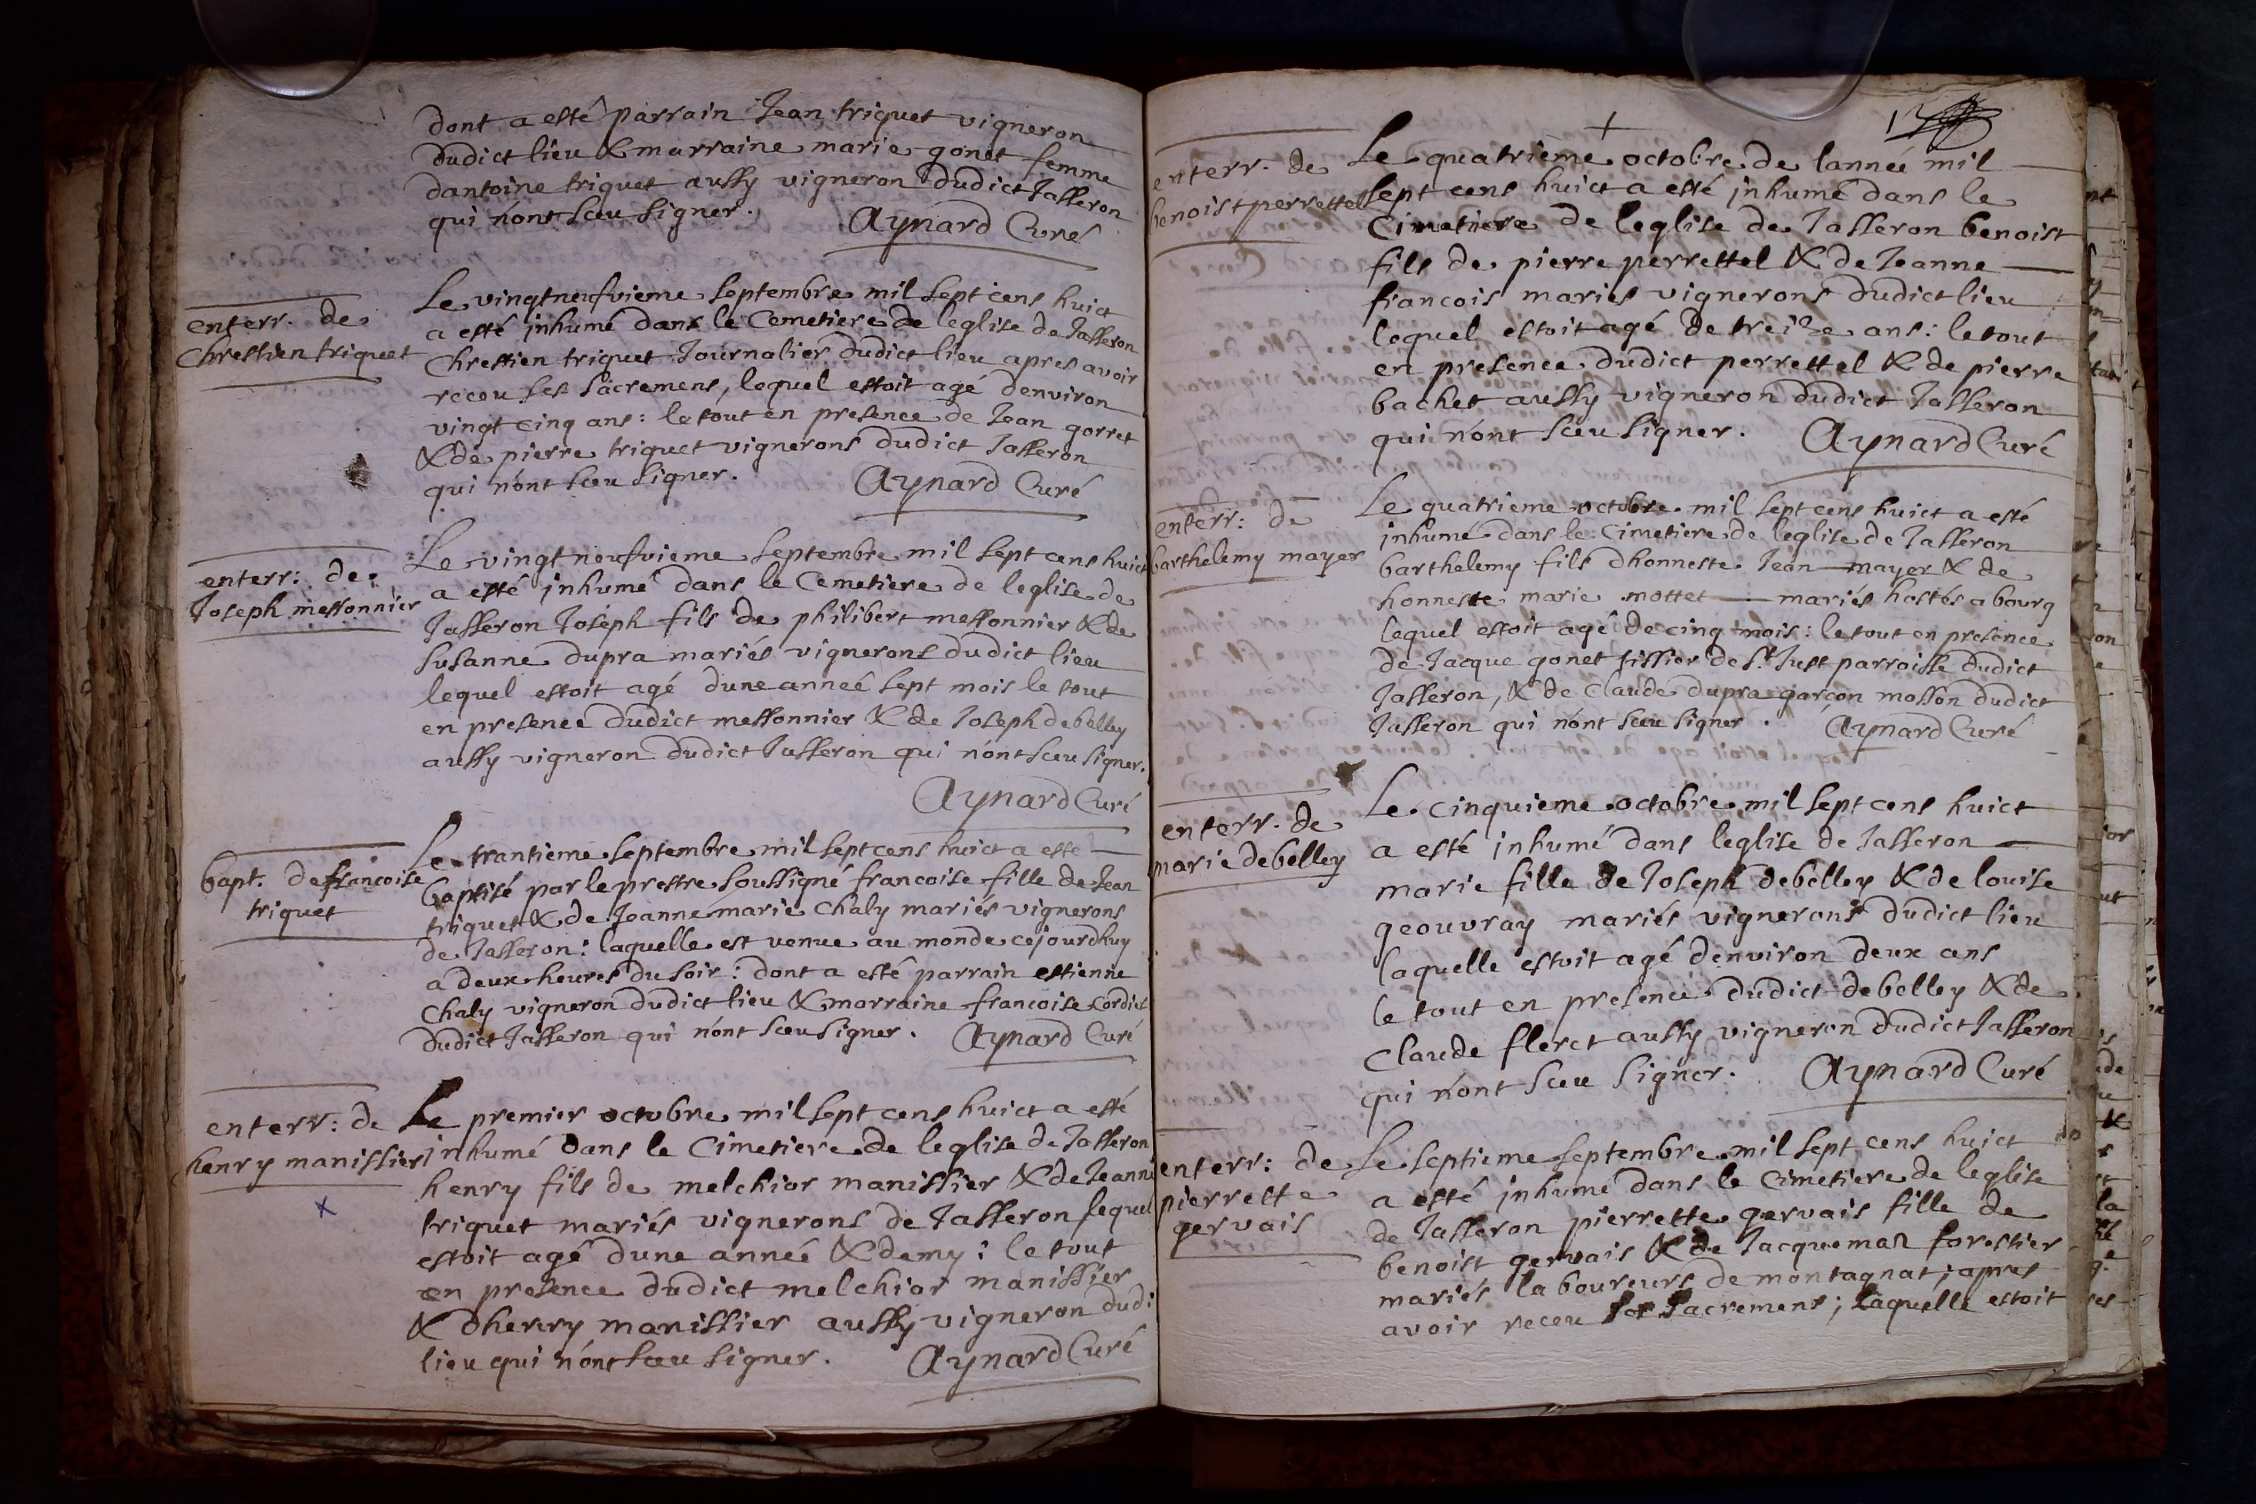 dont a esté parrain Jean triquet vigneron
dudict lieu & marraine marie gonet femme
dantoine triquet aussy vigneron dudict Jasseron
qui n'ont sceu signer. Aynard Curé
enterr. de
Chrestien triquet
Le vingtneufvieme septembre mil sept cens huict
a esté inhumé dans le Cemetiere de leglise de Jasseron
Chrestien triquet Journalier dudict lieu apres avoir
receu ses sacremens, lequel estoit agé denviron
vingt cinq ans: le tout en presence de Jean gorret
& de pierre triquet vignerons dudict Jasseron
qui n'ont sceu signer. Aynard Curé
enterr: de
Joseph messonnier
Le vingt neufvieme septembre mil sept cens huict
a esté inhumé dans le Cemetiere de leglise de
Jasseron Joseph fils de philibert messonnier & de
susanne dupra mariés vignerons dudict lieu
lequel estoit agé dune anneé sept mois le tout
en presence dudict messonnier & de Joseph debelley
aussy vigneron dudict Jasseron qui n'ont sceu signer.
Aynard Curé
bapt. de francoise
triquet
Le trantieme septembre mil sept cens huict a esté
baptisé par le prestre soussigné francoise fille de Jean
triquet & de Jeanne marie Chaly mariés vignerons
de Jasseron: laquelle est venue au monde cejourdhuy
a deux heures du soir: dont a esté parrain estienne
Chaly vigneron dudict lieu & marraine francoise Cordict
dudict Jasseron qui n'ont sceu signer. Aynard Curé
enterr: de
henry manissier
x
Le premier octobre mil sept cens huict a esté
inhumé dans le Cimetiere de leglise de Jasseron
henry fils de melchior manissier & de Jeanne
triquet mariés vignerons de Jasseron lequel
estoit agé dune anneé & demy: le tout
en presence dudict melchior manissier
& dhenry manissier aussy vigneron dudi
lieu qui n'ont sceu signer. Aynard Curé
enterr. de
benoist perrettel
Le quatrieme octobre de lanneé mil
sept cens huict a esté inhumé dans le
Cimetiere de leglise de Jasseron benoist
fils de pierre perrettel & de Jeanne
francois mariés vignerons dudict lieu
lequel estoit agé de treize ans: le tout
en presence dudict perrettel & de pierre
bachet aussy vigneron dudict Jasseron
qui n'ont sceu signer. Aynard Curé
enterr: de
barthelemy mayer
Le quatrieme octobre mil sept cens huict a esté
inhumé dans le Cimetiere de leglise de Jasseron
barthelemy fils dhonneste Jean mayer & de
honneste marie mottet mariés hostes a bourg
lequel estoit agé de cinq mois: le tout en presence
de Jacque gonet tissier de St Just parroisse dudict
Jasseron, & de Claude dupra garcon masson dudict
Jasseron qui n'ont sceu signer. Aynard Curé
enterr. de
marie debelley
Le cinquieme octobre mil sept cens huict
a esté inhumé dans leglise de Jasseron
marie fille de Joseph debelley & de louise
geouvray mariés vignerons dudict lieu
laquelle estoit agé denviron deux ans
le tout en presence dudict debelley & de
Claude fleret aussy vigneron dudict Jasseron
qui n'ont sceu signer. Aynard Curé
enterr: de
pierrette
gervais
Le septieme septembre mil sept cens huict
a esté inhumé dans le Cimetiere de leglise
de Jasseron pierrette gervais fille de
benoist gervais & de Jacquemaz forestier
mariés laboureurs de montagnat; apres
avoir receu ses sacremens; laquelle estoit